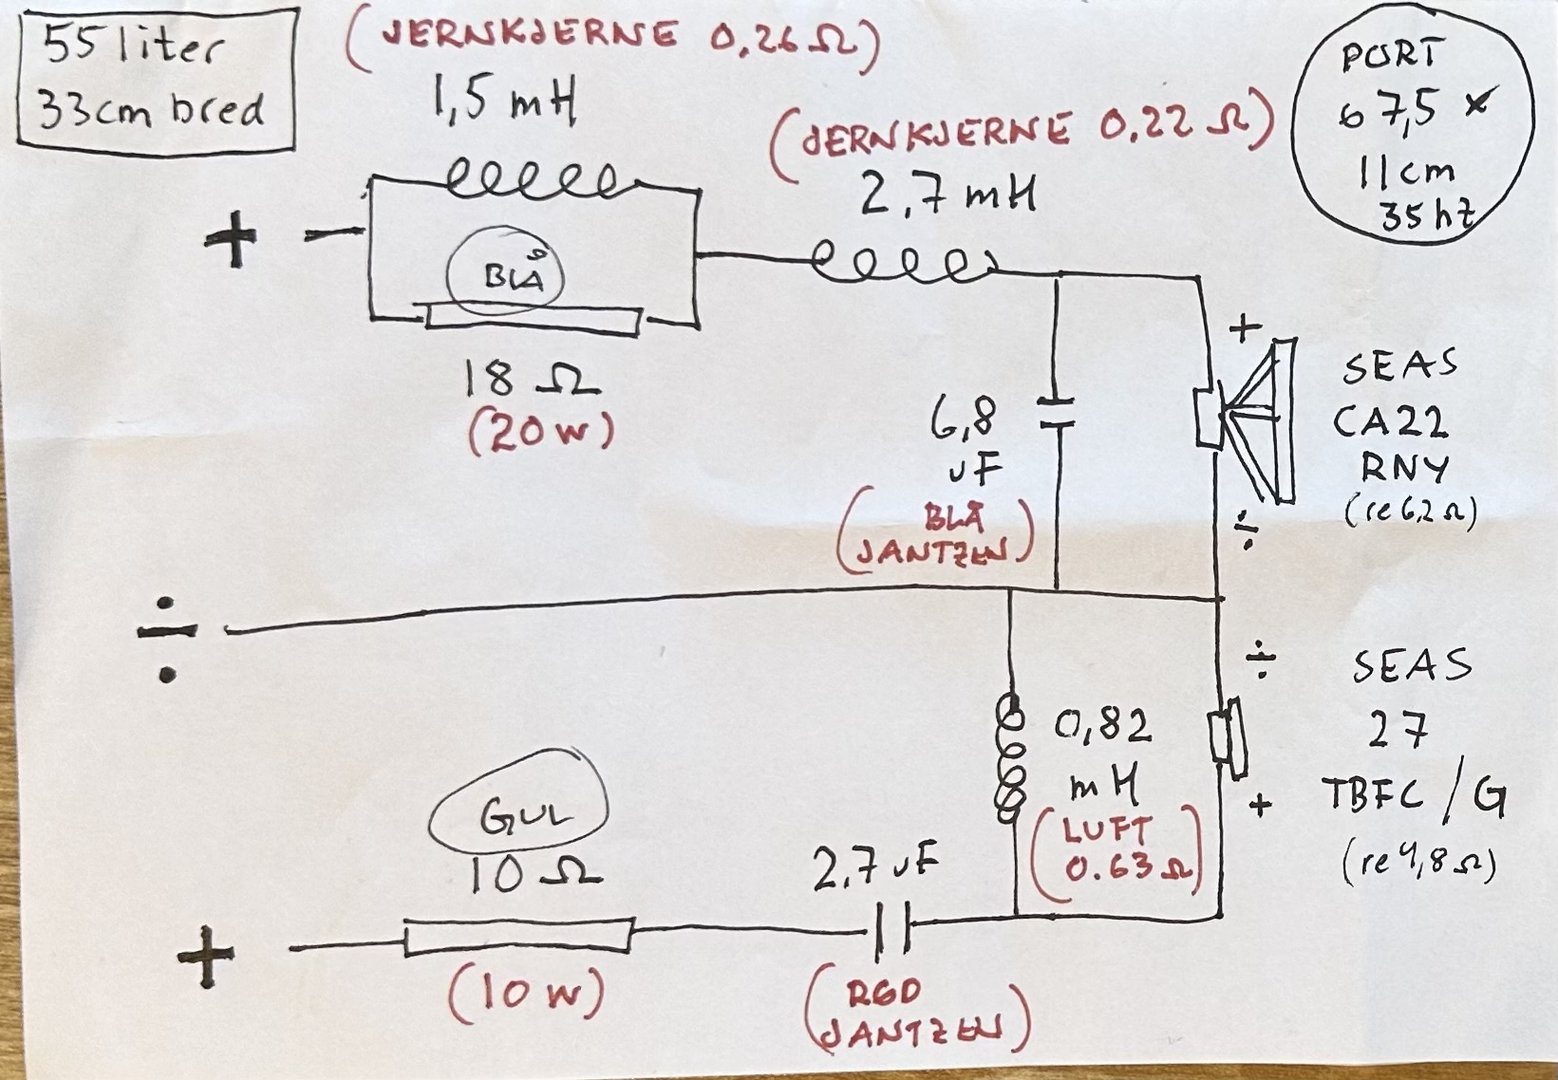 55 liter
33cm bred
(JERNKJERNE 0,26 Ω)
1,5 mH
(JERNKJERNE 0,22 Ω)
2,7 mH
PORT
ø 7,5 x
11cm
35hz
+
BLÅ
18 Ω
(20W)
6,8
uF
(BLÅ
JANTZEN)
+
SEAS
CA22
RNY
(re 6,2 Ω)
÷
÷
÷
SEAS
27
TBFC/G
(re 4,8 Ω)
+
0,82
mH
(LUFT
0.63 Ω)
GUL
10 Ω
2,7 uF
+
(10W)
(RØD
JANTZEN)